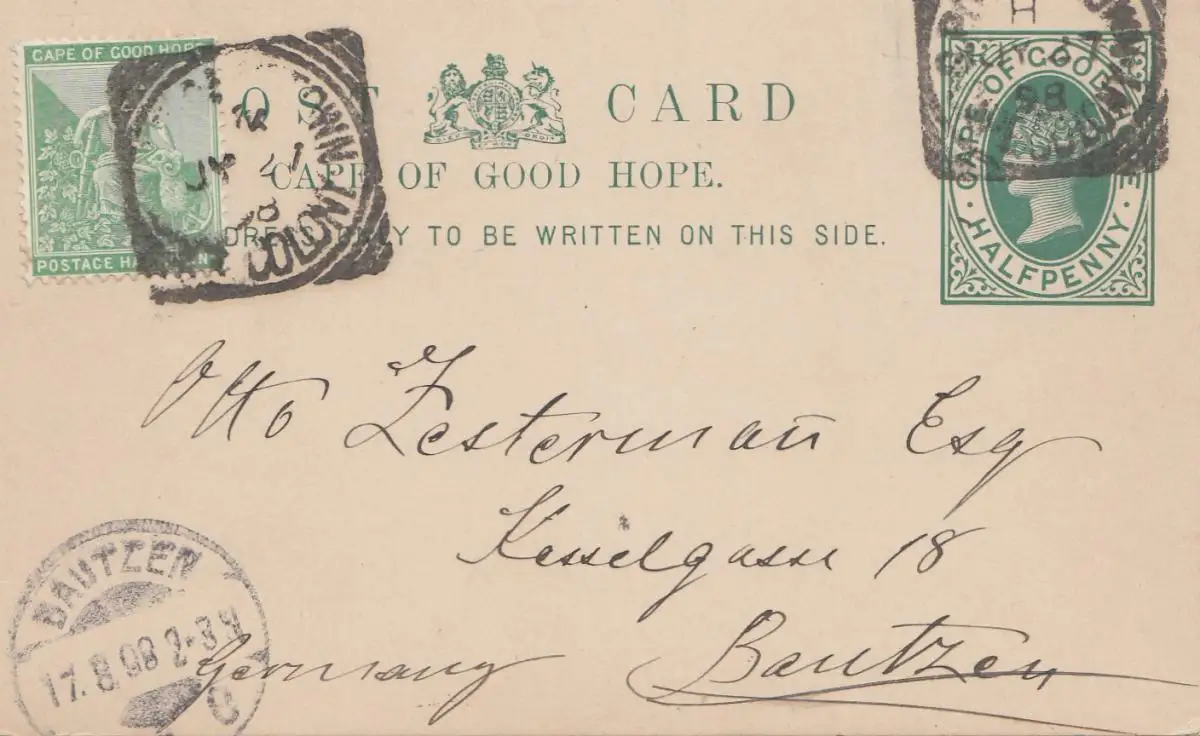 CAPE OF GOOD HOPE
POSTAGE HA
OST CARD
CAPE OF GOOD HOPE.
ONLY TO BE WRITTEN ON THIS SIDE.
CAPE OF GOOD HOPE
HALFPENNY
H
98
COLONY
JY 27
98
COLONY
Otto Zestermañ Esq
Kesselgasse 18
Bautzen
Germany
BAUTZEN
17.8.98 2-3 N
C